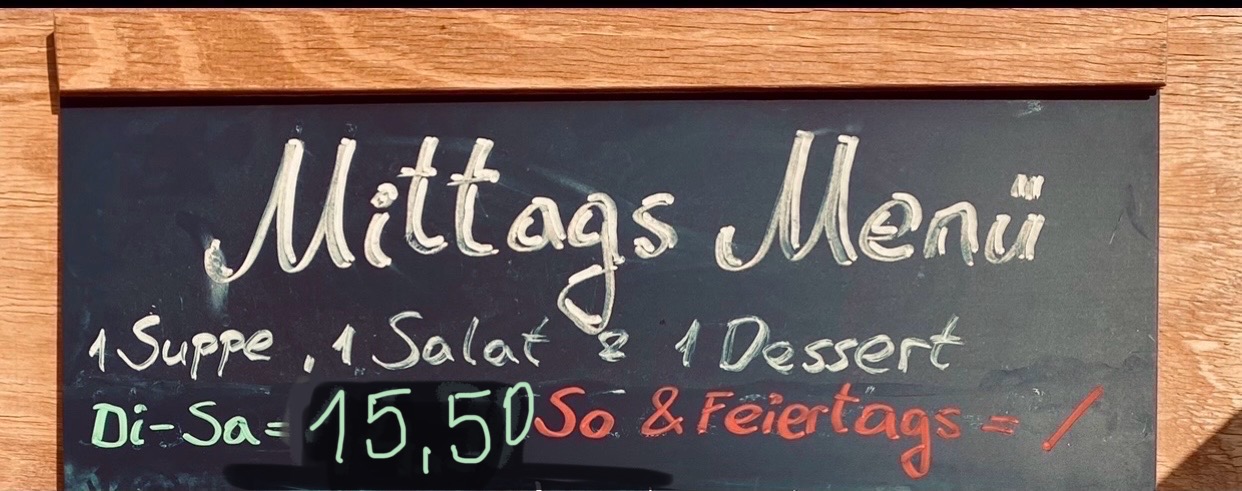 Mittags Menü
1 Suppe, 1 Salat & 1 Dessert
Di-Sa= 15,50 So & Feiertags = /